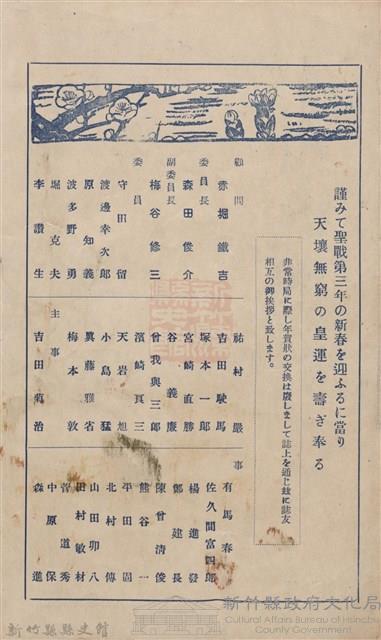 謹みて聖戰第三年の新春を迎ふるに當り
天壤無窮の皇運を壽ぎ奉る
非常時局に際し年賀狀の交換は廢しまして誌上を通じ玆に誌友
相互の御挨拶と致します。
顧問
赤堀鐵吉
委員長
森田俊介
副委員長
梅谷修三
委員
守田留
渡邊幸次郎
原知義
波多野勇
堀克夫
李讚生
祐村嚴
吉田駛馬
塚本一郎
宮崎直勝
谷義廉
曾我與三郎
濱崎良三
天岩旭
小島猛
異藤雅省
梅本敦
主事
吉田菊治
事
有馬春
佐久間富四郎
楊進發
鄭建長
陳曾清俊
熊谷一
平田固
北村傳
山田卯八
田村敏材
菅道秀
中原保
森進
新竹縣縣史館
新竹縣政府文化局
Cultural Affairs Bureau of Hsinchu
County Government